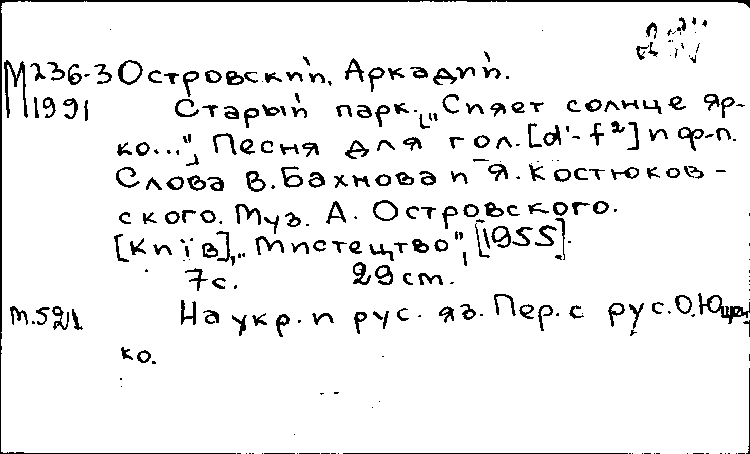 М236-3 Островский, Аркадий.
М1991 Старый парк. ["Сияет солнце яр-
ко..."], Песня для гол. [d¹-f²] и ф-п.
Слова В. Бахнова и Я. Костюков-
ского. Муз. А. Островского.
[Київ], "Мистецтво", [1955].
7с. 29 cm.
м.521 На укр. и рус. яз. Пер. с рус. О. Ющен
ко.